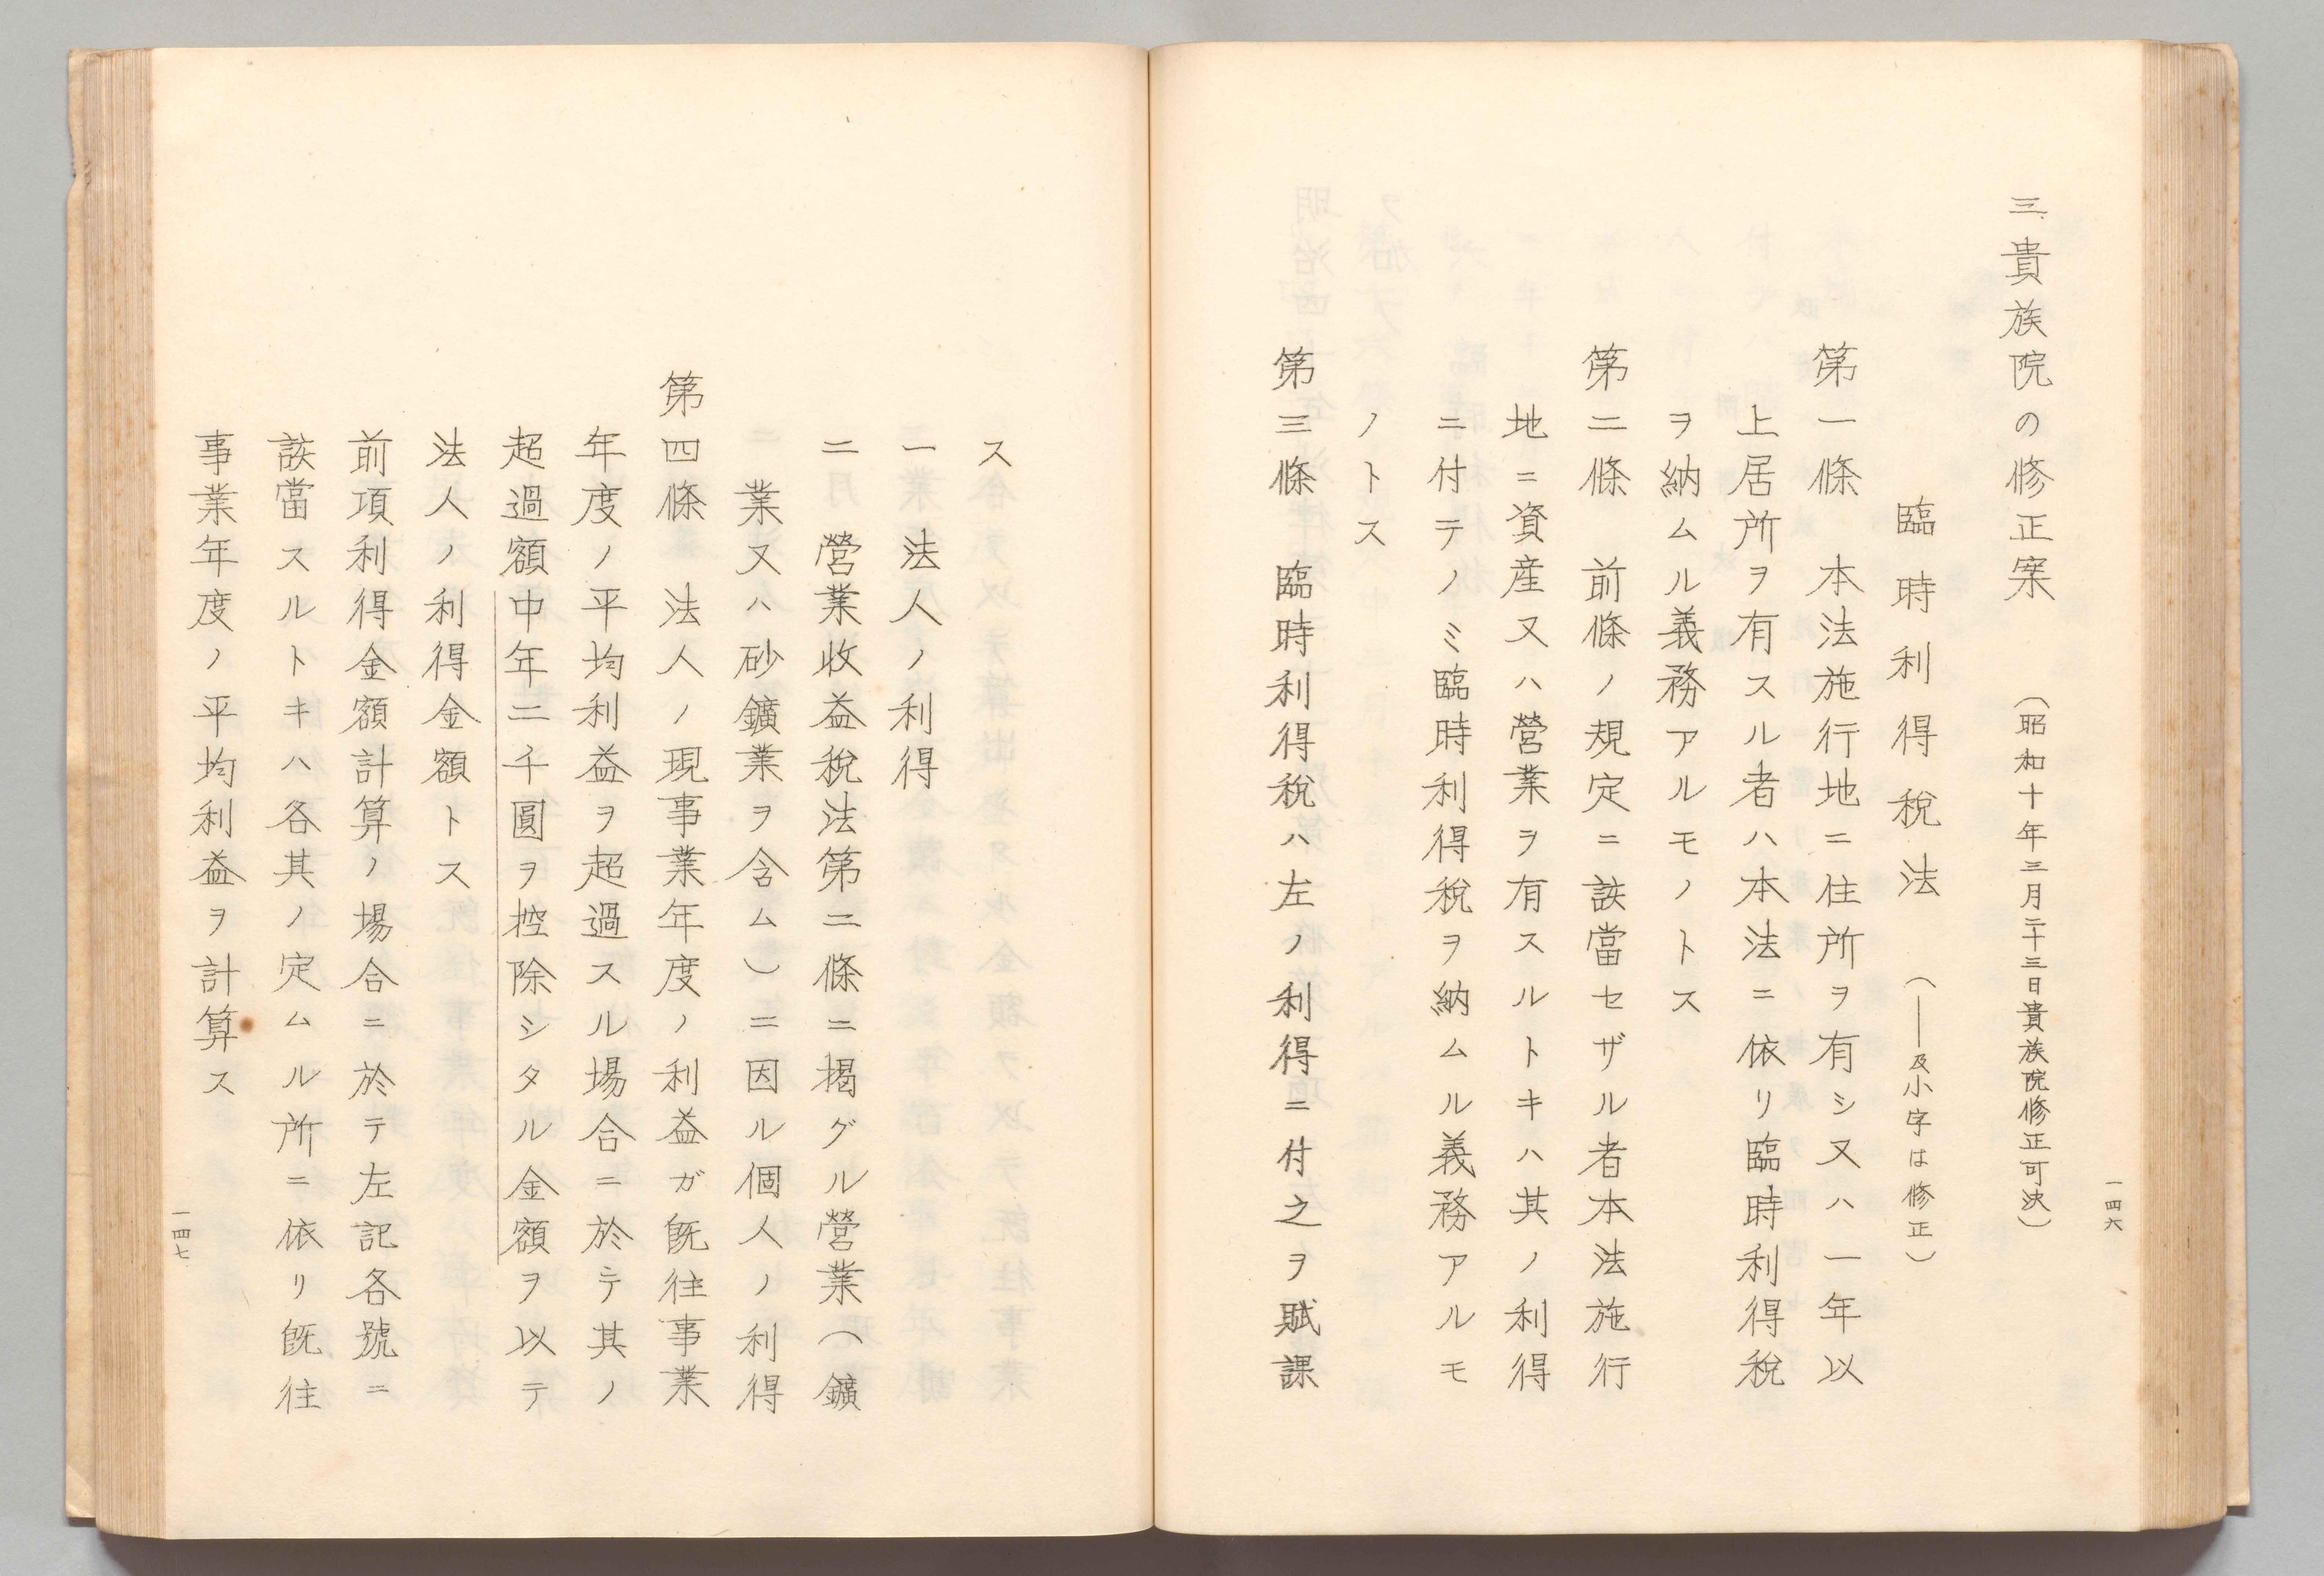 一四六
三 貴族院の修正案 (昭和十年三月二十三日貴族院修正可決)
臨時利得稅法 (――及小字は修正)
第一條 本法施行地ニ住所ヲ有シ又ハ一年以
上居所ヲ有スル者ハ本法ニ依リ臨時利得稅
ヲ納ムル義務アルモノトス
第二條 前條ノ規定ニ該當セザル者本法施行
地ニ資産又ハ營業ヲ有スルトキハ其ノ利得
ニ付テノミ臨時利得稅ヲ納ムル義務アルモ
ノトス
第三條 臨時利得稅ハ左ノ利得ニ付之ヲ賦課
ス
一 法人ノ利得
二 營業收益稅法第二條ニ揭グル營業(鑛
業又ハ砂鑛業ヲ含ム)ニ因ル個人ノ利得
第四條 法人ノ現事業年度ノ利益ガ旣往事業
年度ノ平均利益ヲ超過スル場合ニ於テ其ノ
超過額中年二千圓ヲ控除シタル金額ヲ以テ
法人ノ利得金額トス
前項利得金額計算ノ場合ニ於テ左記各號ニ
該當スルトキハ各其ノ定ムル所ニ依リ旣往
事業年度ノ平均利益ヲ計算ス
一四七